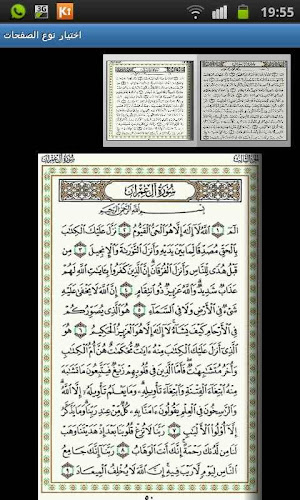 19:55
اختيار نوع الصفحات
الجزء الثالث
سورة آل عمران
سُورَةُ آلِ عِمْرَانَ
بِسْمِ ٱللَّهِ ٱلرَّحْمَٰنِ ٱلرَّحِيمِ
الٓمٓ ١ ٱللَّهُ لَآ إِلَٰهَ إِلَّا هُوَ ٱلْحَىُّ ٱلْقَيُّومُ ٢ نَزَّلَ عَلَيْكَ ٱلْكِتَٰبَ
بِٱلْحَقِّ مُصَدِّقًا لِّمَا بَيْنَ يَدَيْهِ وَأَنزَلَ ٱلتَّوْرَىٰةَ وَٱلْإِنجِيلَ ٣ مِن
قَبْلُ هُدًى لِّلنَّاسِ وَأَنزَلَ ٱلْفُرْقَانَ إِنَّ ٱلَّذِينَ كَفَرُوا۟ بِـَٔايَٰتِ ٱللَّهِ لَهُمْ
عَذَابٌ شَدِيدٌ وَٱللَّهُ عَزِيزٌ ذُو ٱنتِقَامٍ ٤ إِنَّ ٱللَّهَ لَا يَخْفَىٰ عَلَيْهِ
شَىْءٌ فِى ٱلْأَرْضِ وَلَا فِى ٱلسَّمَآءِ ٥ هُوَ ٱلَّذِى يُصَوِّرُكُمْ
فِى ٱلْأَرْحَامِ كَيْفَ يَشَآءُ لَآ إِلَٰهَ إِلَّا هُوَ ٱلْعَزِيزُ ٱلْحَكِيمُ ٦ هُوَ
ٱلَّذِىٓ أَنزَلَ عَلَيْكَ ٱلْكِتَٰبَ مِنْهُ ءَايَٰتٌ مُّحْكَمَٰتٌ هُنَّ أُمُّ ٱلْكِتَٰبِ
وَأُخَرُ مُتَشَٰبِهَٰتٌ فَأَمَّا ٱلَّذِينَ فِى قُلُوبِهِمْ زَيْغٌ فَيَتَّبِعُونَ مَا تَشَٰبَهَ
مِنْهُ ٱبْتِغَآءَ ٱلْفِتْنَةِ وَٱبْتِغَآءَ تَأْوِيلِهِۦ وَمَا يَعْلَمُ تَأْوِيلَهُۥٓ إِلَّا ٱللَّهُ
وَٱلرَّٰسِخُونَ فِى ٱلْعِلْمِ يَقُولُونَ ءَامَنَّا بِهِۦ كُلٌّ مِّنْ عِندِ رَبِّنَا وَمَا يَذَّكَّرُ
إِلَّآ أُو۟لُوا۟ ٱلْأَلْبَٰبِ ٧ رَبَّنَا لَا تُزِغْ قُلُوبَنَا بَعْدَ إِذْ هَدَيْتَنَا وَهَبْ
لَنَا مِن لَّدُنكَ رَحْمَةً إِنَّكَ أَنتَ ٱلْوَهَّابُ ٨ رَبَّنَآ إِنَّكَ جَامِعُ
ٱلنَّاسِ لِيَوْمٍ لَّا رَيْبَ فِيهِ إِنَّ ٱللَّهَ لَا يُخْلِفُ ٱلْمِيعَادَ ٩
٥٠